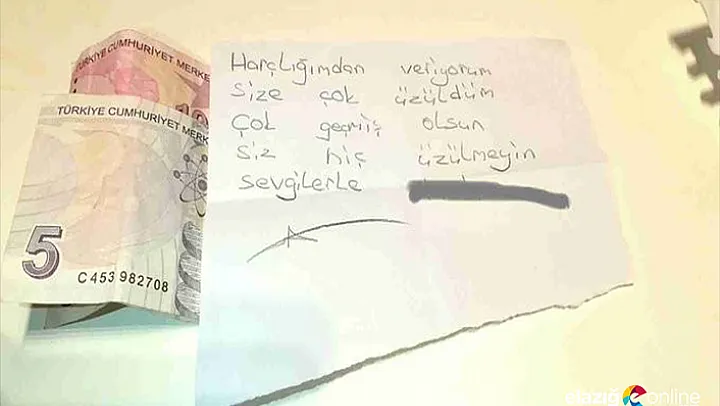 TÜRKİYE CUMHURİYET MERKE
10
TÜRKİYE CUMHURİYET MERK
5
C453 982708
Harçlığımdan veriyorum
Size çok üzüldüm
Çok geçmiş olsun
Siz hiç üzülmeyin
Sevgilerle
elazığ online